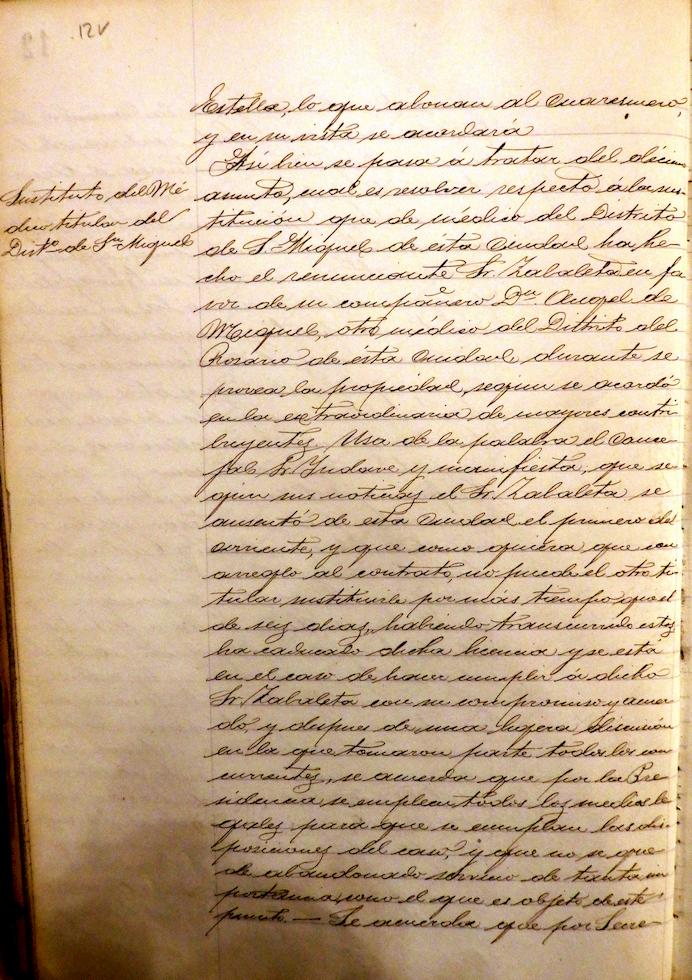 12v
Estella, lo que abonan al cuaresmero,
y en su vista se acordará
Así bien se pasa á tratar del décimo
asunto, cual es resolver respecto á la sus-
titución que de médico del Distrito
de S. Miguel de ésta Ciudad ha he-
cho el renunciante Sr. Zabaleta en fa
vor de su compañero Dn. Angel de
Miguel, otro médico del Distrito del
Rosario de esta Ciudad durante se
provea la propiedad, segun se acordó
en la extraordinaria de mayores contri-
buyentes. Usa de la palabra el Conce-
jal Sr. Yndave y manifiesta, que se-
gun sus noticias el Sr. Zabaleta se
ausentó de esta Ciudad el primero del
corriente, y que como quiera que con
arreglo al contrato, no puede el otro ti-
tular sustituirle por más tiempo que el
de seis dias, habiendo transcurrido estos
ha caducado dicha licencia y se está
en el caso de hacer cumplir á dicho
Sr. Zabaleta con su compromiso y acuer
do, y despues de una ligera discusión
en la que tomaron parte todos los con
currentes, se acuerda que por la Pre
sidencia se emplean todos los medios le
gales para que se cumplan las dis-
posiciones del caso, y que no se que
de abandonado servicio de tanta im
portancia como el que es objeto de este
punto. — Se acuerda que por Secre-
Sustituto del Mé
dico titular del
Disto. de Sn. Miguel